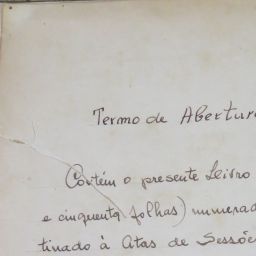 Termo de Abertur
Contém o presente Livro
e cinquenta folhas) numerad
tinado à Atas de Sessõe